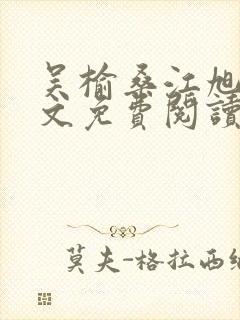 吴榆桑江旭
文免费閱讀
莫夫-格拉西纳